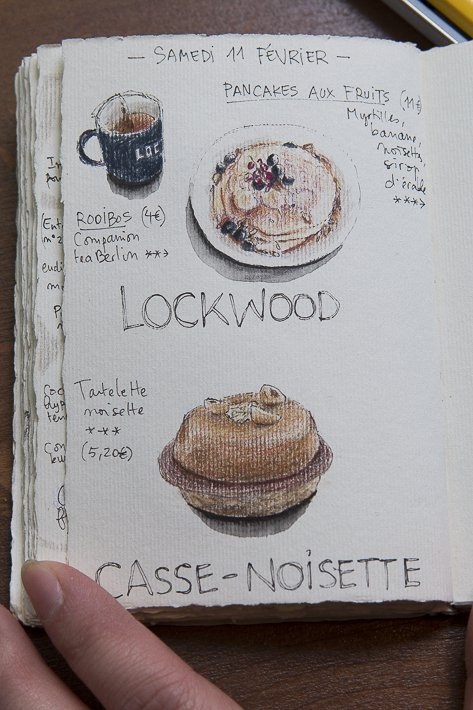 — SAMEDI 11 FÉVRIER —
PANCAKES AUX FRUITS (11€)
Myrtilles,
banane,
noisette,
sirop
d'érable
LOC
ROOIBOS (4€)
Companion
tea Berlin ***
LOCKWOOD
Tartelette
noisette
***
(5,20€)
CASSE-NOISETTE